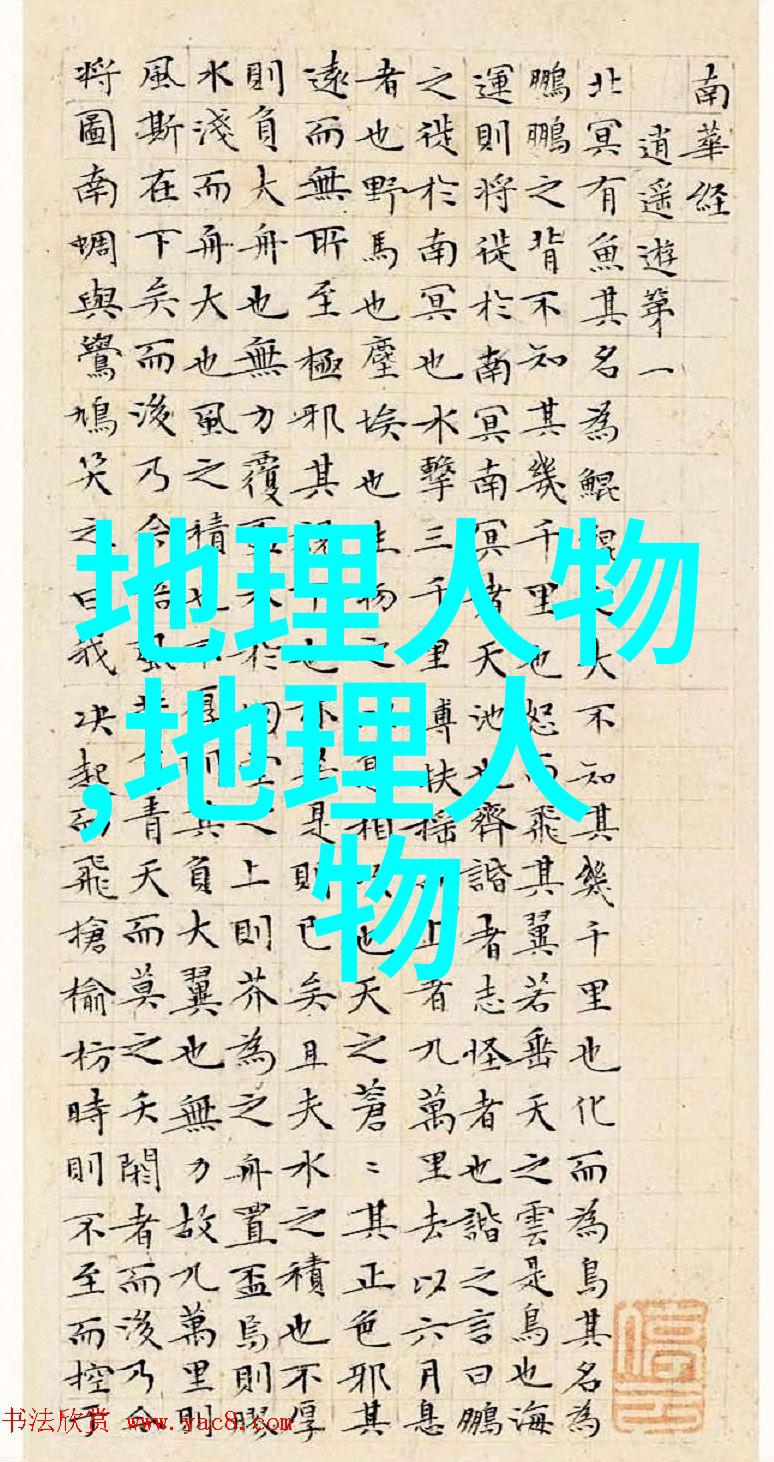 南華経
逍遥遊第一
北冥有魚其名為鯤鯤大不知其幾千里也化而為鳥其名為
鵬鵬之背不知其幾千里也怒而飛其翼若垂天之雲是鳥也海
運則将徙於南冥南冥者天池也齊諧者志怪者也諧之言曰鵬
之徙於南冥也水擊三千里摶扶揺上者九萬里去以六月息
者也野馬也塵埃也生物之息相也天之蒼〻其正色邪其
遠而無所至極邪其下也亦是則已矣且夫水之積也不厚
則負大舟也無力覆盃水於堂之上則芥為之舟置盃焉則膠
水淺而舟大也風之積也不厚則其負大翼也無力故九萬里則
風斯在下矣而後乃今風青天而莫之夭閼者而後乃今
将圖南蜩與鷽鳩笑之曰我决起而飛搶榆枋時則不至而控於
地理人物
,地理人
物
书法欣赏 www.yac8.com